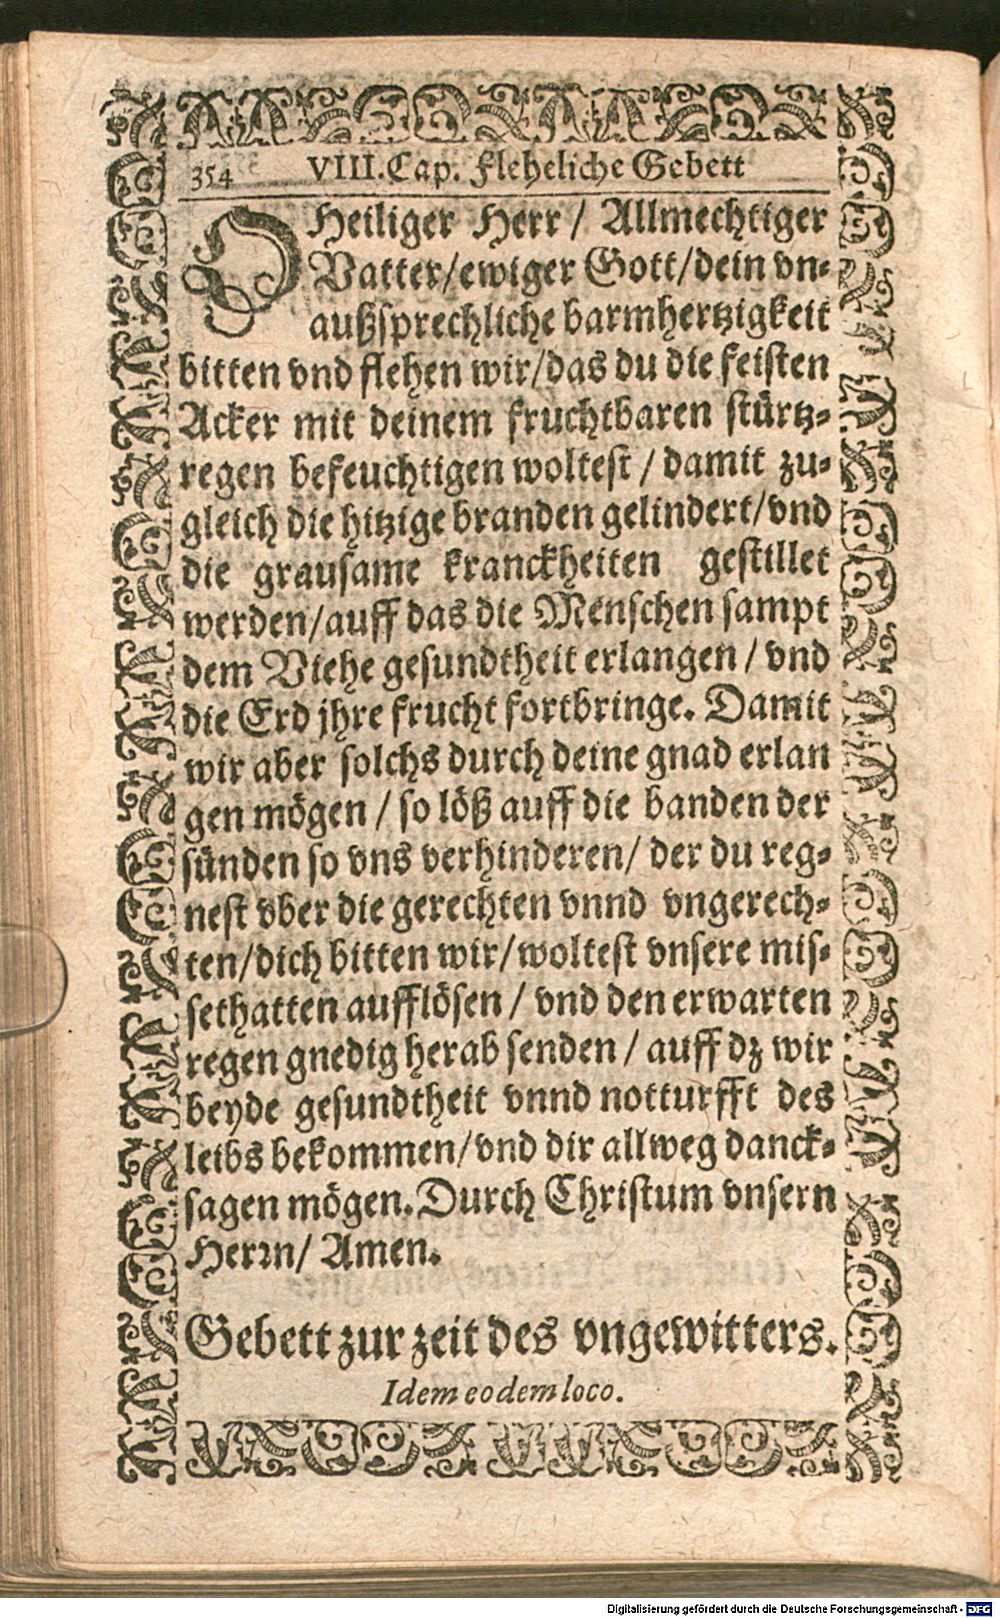 354 VIII. Cap. Fleheliche Gebett
O Heiliger Herr / Allmechtiger
Vatter/ewiger Gott/dein vn-
außsprechliche barmhertzigkeit
bitten vnd flehen wir/das du die feisten
Acker mit deinem fruchtbaren stürtz-
regen befeuchtigen woltest / damit zu-
gleich die hitzige branden gelindert/vnd
die grausame kranckheiten gestillet
werden/auff das die Menschen sampt
dem Viehe gesundtheit erlangen / vnd
die Erd jhre frucht fortbringe. Damit
wir aber solchs durch deine gnad erlan
gen mögen / so löß auff die banden der
sünden so vns verhinderen/ der du reg-
nest vber die gerechten vnnd vngerech-
ten/dich bitten wir/woltest vnsere mis-
sethatten aufflösen / vnd den erwarten
regen gnedig herab senden / auff dz wir
beyde gesundtheit vnnd notturfft des
leibs bekommen/vnd dir allweg danck-
sagen mögen. Durch Christum vnsern
Herrn/ Amen.
Gebett zur zeit des vngewitters.
Idem eodem loco.
Digitalisierung gefördert durch die Deutsche Forschungsgemeinschaft - DFG